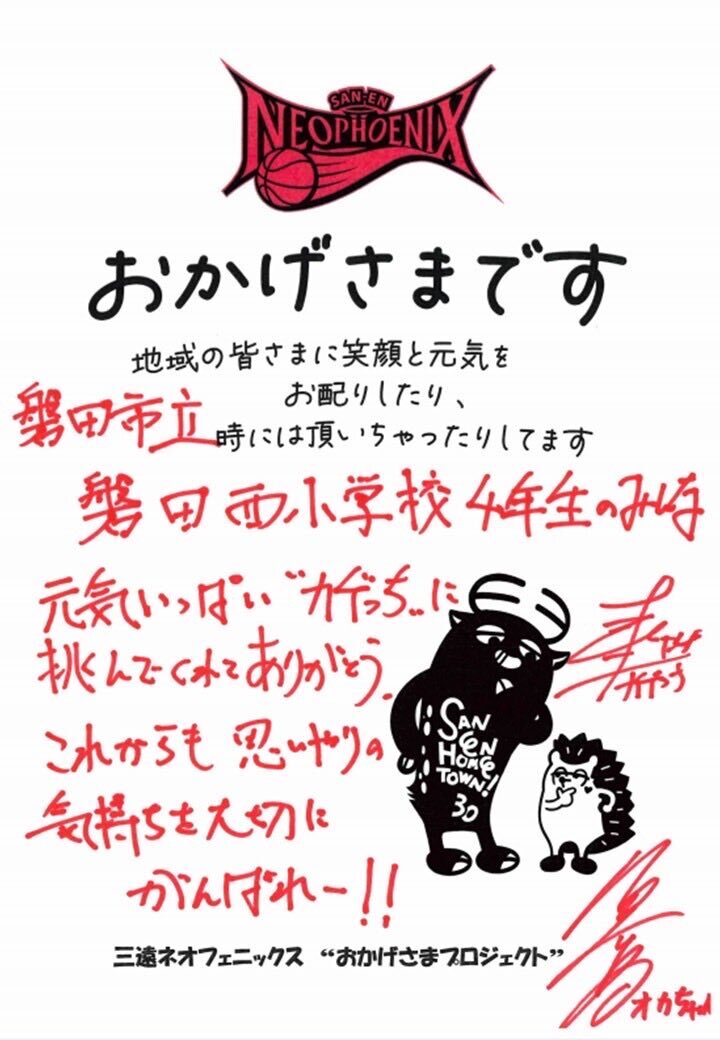 SAN-EN
NEOPHOENIX
おかげさまです
地域の皆さまに笑顔と元気を
お配りしたり、
時には頂いちゃったりしてます
磐田市立
磐田西小学校 4年生のみんな
元気いっぱい"カデっち"に
挑んでくれてありがとう。
これからも 思いやりの
気持ちを大切に
がんばれー!!
SAN
EN
HOME
TOWN!
30
オカちゃん
三遠ネオフェニックス “おかげさまプロジェクト”